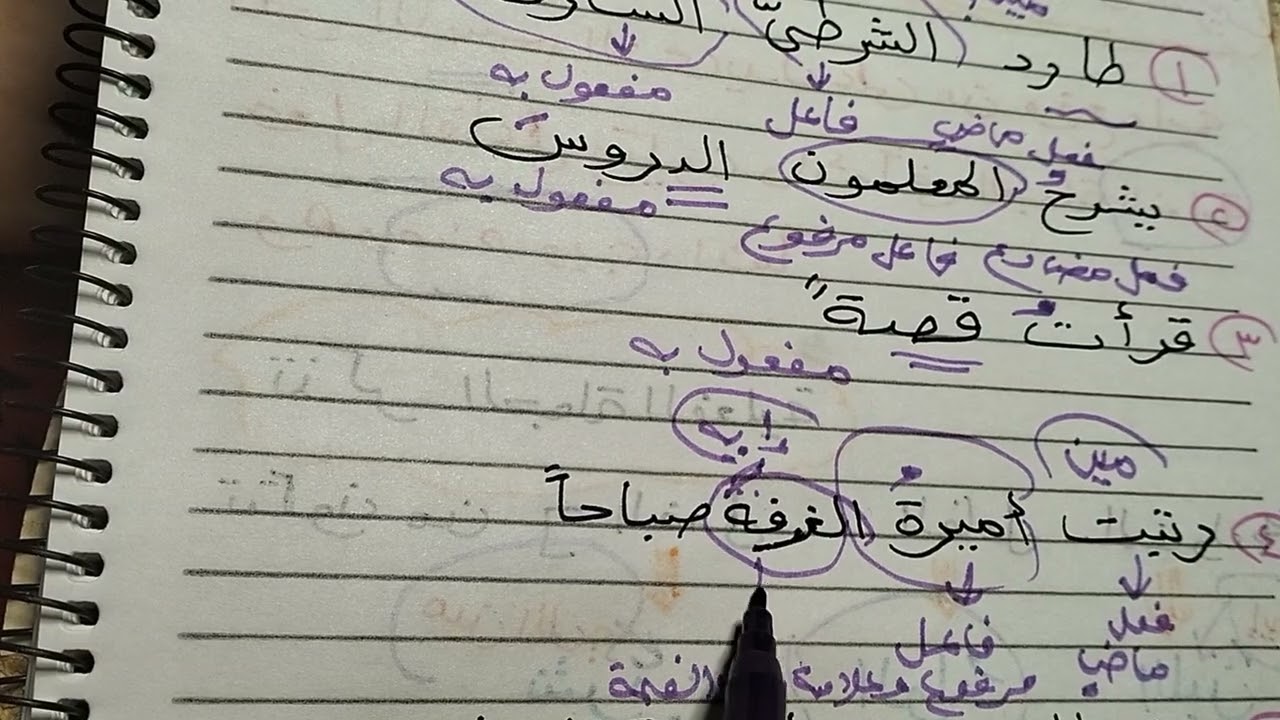 ١ طارد الشرطيّ السارق
فعل ماضي فاعل مفعول به
٢ يشرحُ المعلمون الدروسَ
فعل مضارع فاعل مرفوع مفعول به
٣ قرأتُ قصةً
مفعول به
مين ايه
٤ رتبت أميرةُ الغرفةَ صباحاً
فعل ماضي فاعل مرفوع وعلامة الضمة